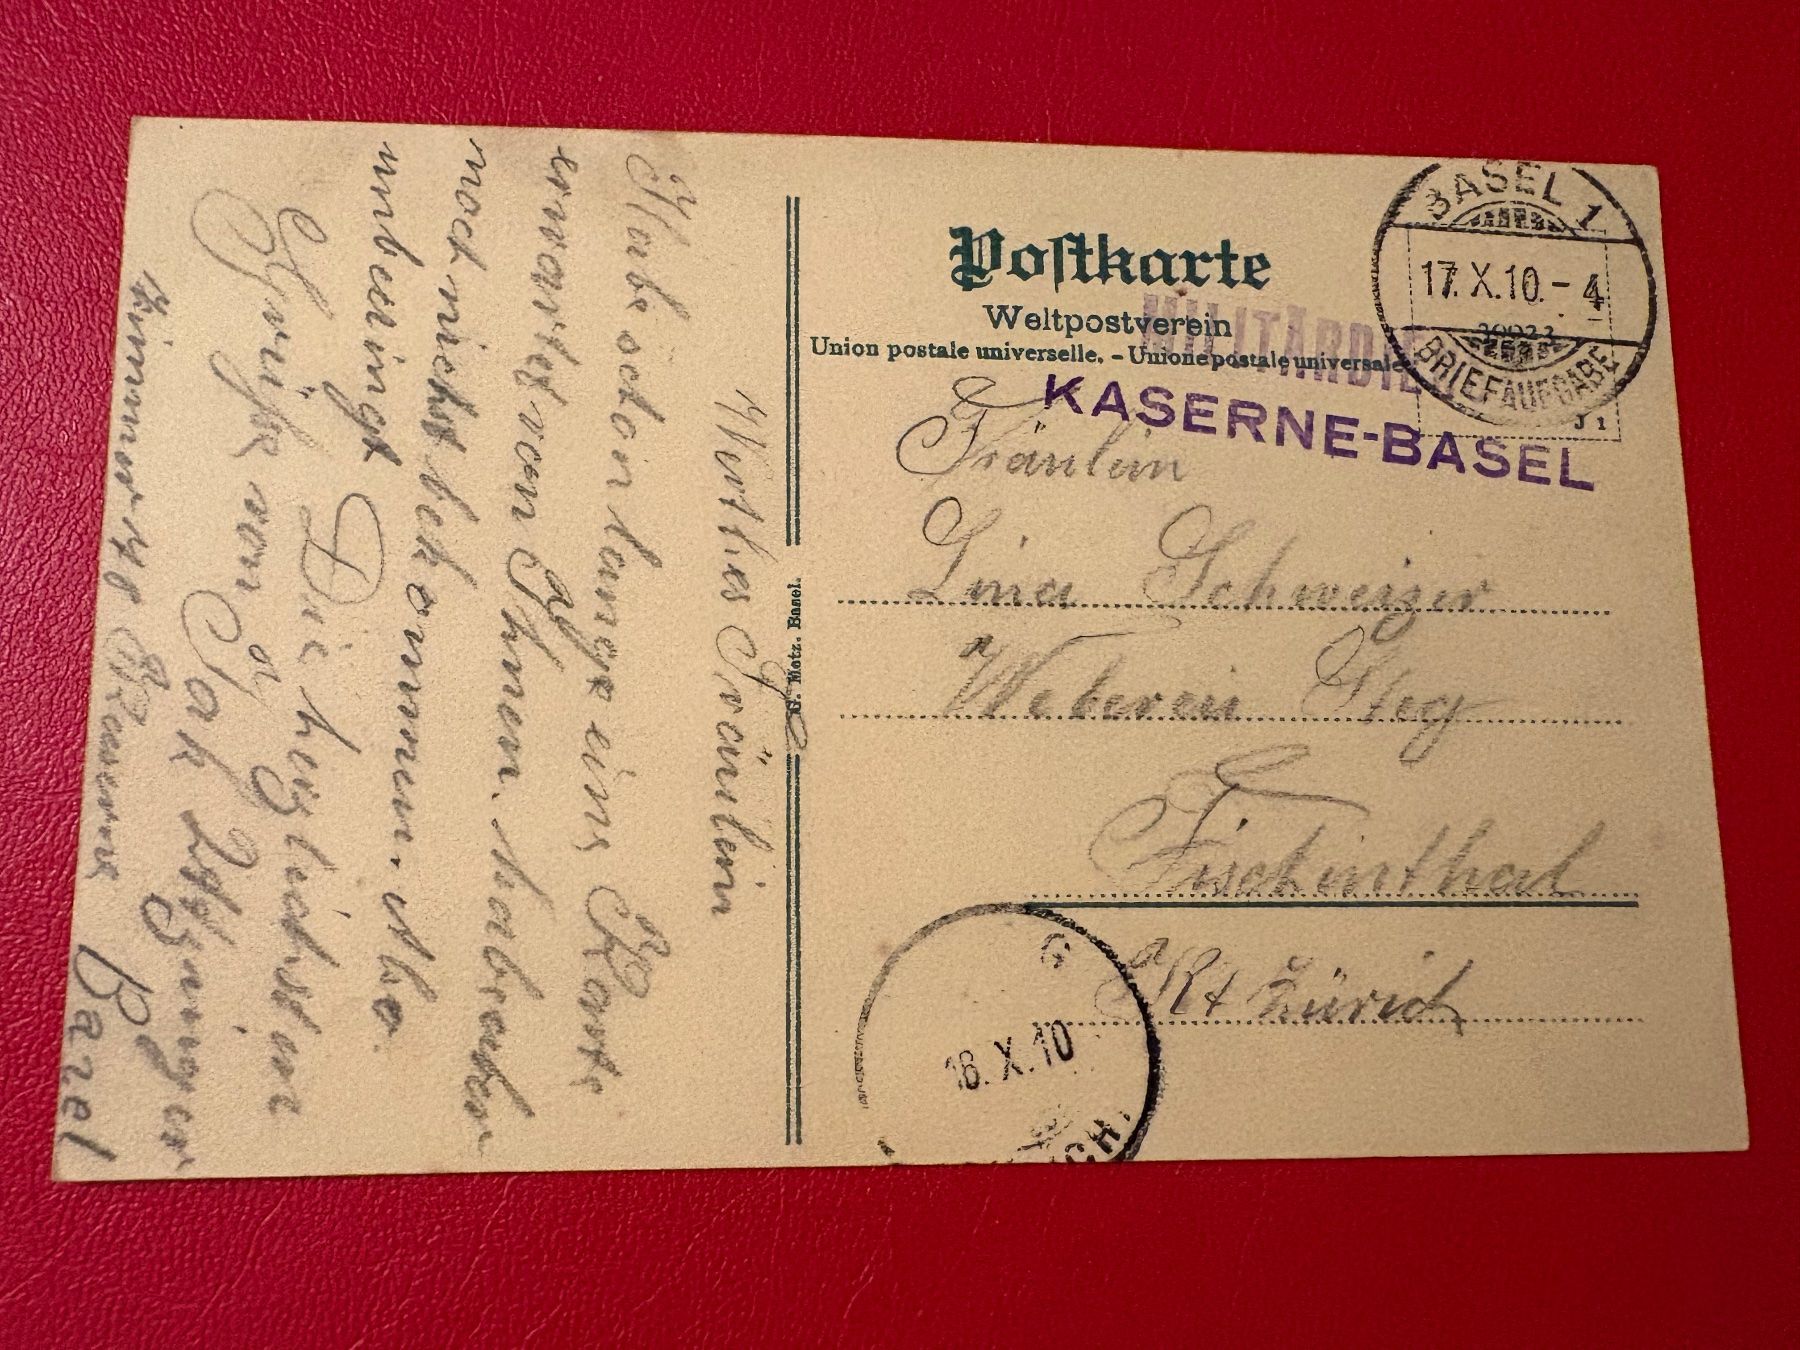 Postkarte
Weltpostverein
Union postale universelle. - Unione postale universale
MILITÄRDIE
KASERNE-BASEL
BASEL 1
17. X. 10. - 4
BRIEFAUFGABE
J 1
Fräulein
Lina Schweizer
Weberei Steg
Fischinthal
Kt Zürich
G
18. X. 10
CH.
G. Metz. Basel.
Wirthes Fräulein
Habe schon lange eine Karte
erwartet von Ihnen. habe aber
noch nicht bekommen. Also
unbedingt Die herzlichsten
Grüße von
Jak
Zimmer 48 Kaserne Bazel